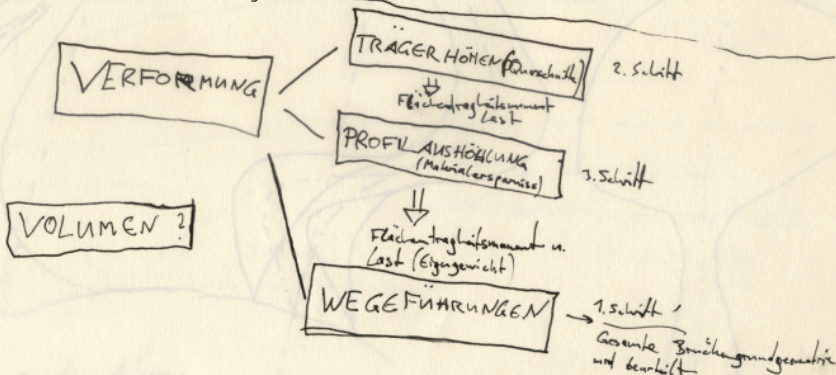 TRÄGERHÖHEN (Querschnitte)
2. Schritt
VERFORMUNG
Flächenträgheitsmoment
Last
PROFIL AUSHÖHLUNG
(Materialersparniss)
3. Schritt
VOLUMEN ?
Flächenträgheitsmoment u.
Last (Eigengewicht)
WEGEFÜHRUNGEN
1. Schritt
Gesamte Brückengrundgeometrie
wird beurteilt